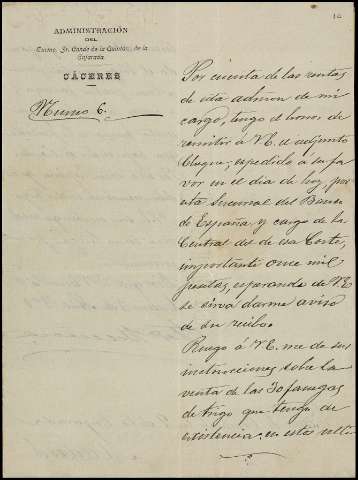 ADMINISTRACIÓN
DEL
Excmo. Sr. Conde de la Quinta de la
Enjarada
CÁCERES
Numo 6.
Por cuenta de las rentas
de esta admon de mi
cargo, tengo el honor de
remitir á VE. el adjunto
Cheque, expedido á su fa
vor en el dia de hoy, por
esta Sucursal del Banco
de España y cargo de la
Central de esa Corte,
importante once mil
pesetas, esperando de VE
se sirva darme aviso
de su recibo.
Ruego á VE. me de sus
instrucciones sobre la
venta de las 30 fanegas
de trigo que tengo en
existencia, en estos